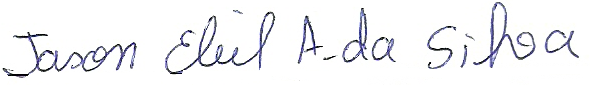 Jason Eliel A. da Silva